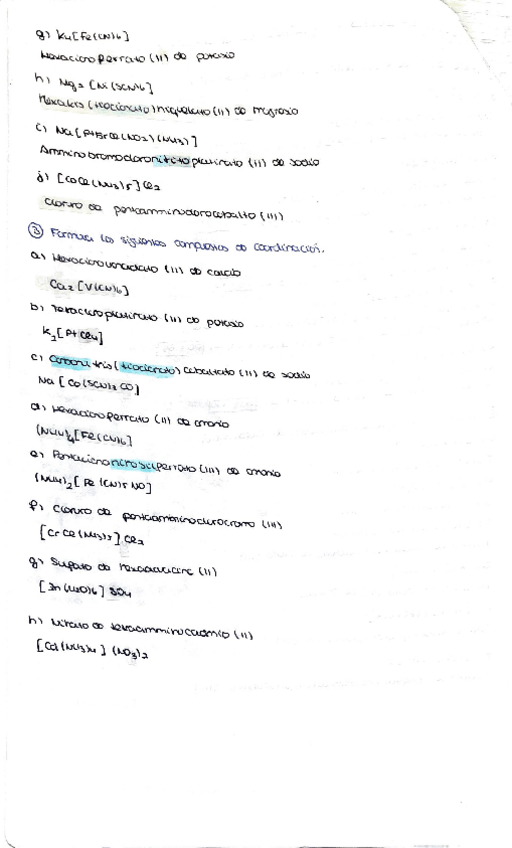 g) K4[Fe(CN)6]
Hexacianoferrato (II) de potasio
h) Mg2 [Ni(SCN)6]
Hexakis (tiocianato) niquelato (II) de magnesio
c) Na[PtBrCl(NO2)(NH3)]
Amminobromocloronitritoplatinato (II) de sodio
j) [CoCl(NH3)5]Cl2
Cloruro de pentaamminoclorocobalto (III)
③ Formula los siguientes compuestos de coordinación.
a) Hexacianovanadato (II) de calcio
Ca2 [V(CN)6]
b) Tetracloroplatinato (II) de potasio
K2[PtCl4]
c) Carboniltris(tiocianato) cobaltato (II) de sodio
Na [Co(SCN)3 CO]
d) Hexacianoferrato (II) de amonio
(NH4)4[Fe(CN)6]
e) Pentacianonitrosilferrato (III) de amonio
(NH4)2[Fe(CN)5 NO]
f) Cloruro de pentaamminoclorocromo (III)
[CrCl(NH3)5]Cl2
g) Sulfato de hexaacuacinc (II)
[Zn(H2O)6]SO4
h) Nitrato de tetraammincadmio (II)
[Cd(NH3)4] (NO3)2